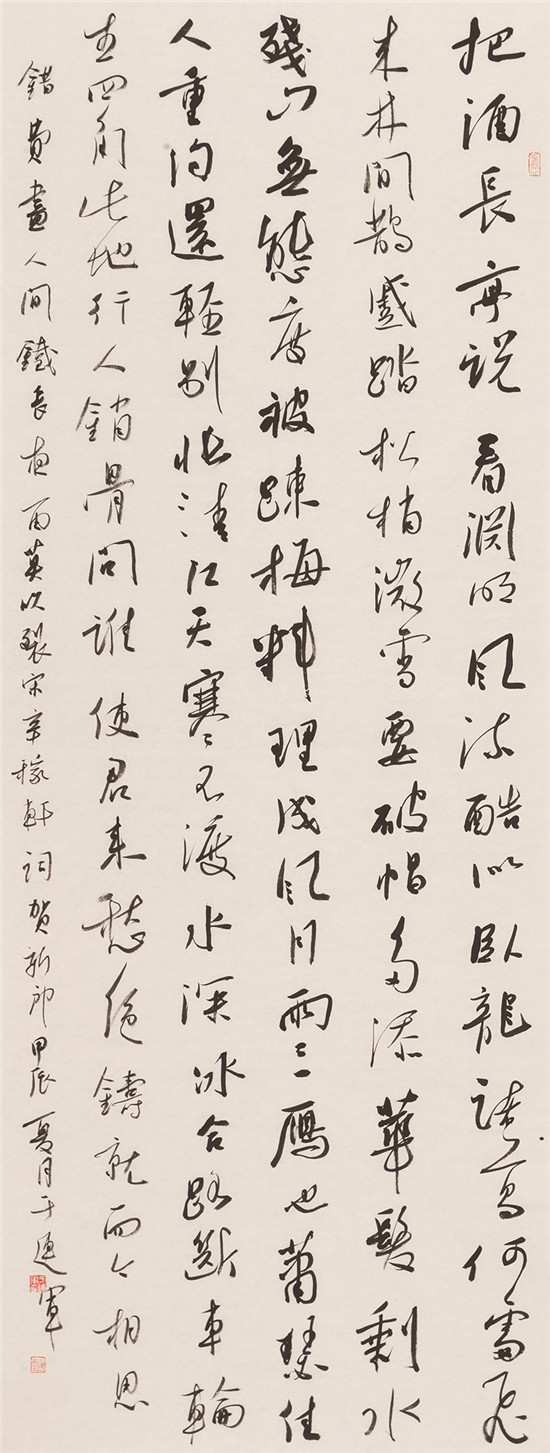 把酒長亭說看淵明風流酷似臥龍諸葛何處飛
來林間鵲蹙踏松梢微雪要破帽多添華髮剩水
殘山無態度被疎梅料理成風月兩三雁也蕭瑟佳
人重約還輕別悵清江天寒不渡水深冰合路斷車輪
生四角此地行人銷骨問誰使君來愁絕鑄就而今相思
錯費盡人間鐵長夜笛莫吹裂宋辛稼軒詞賀新郎甲辰夏月于軍